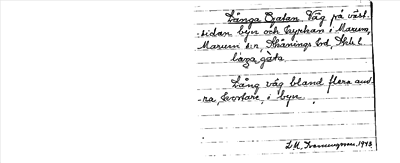 Långa Gatan, Väg på väst-
sidan byn och kyrkan i Marum,
Marum s:n, Skånings hd, Skbl.
långa gata.
Lång väg bland flera and-
ra, kortare, i byn.
1943